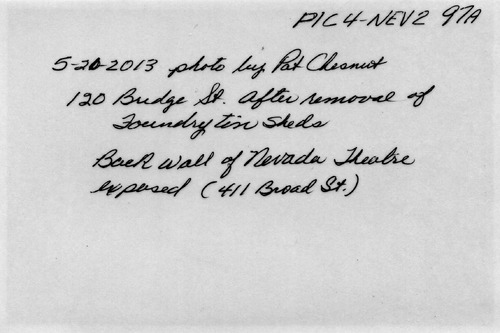 PIC 4-NEV2 97A
5-20-2013 photo by Pat Chesnut
120 Bridge St. After removal of
Foundry tin Sheds
Back wall of Nevada Theatre
exposed (411 Broad St.)